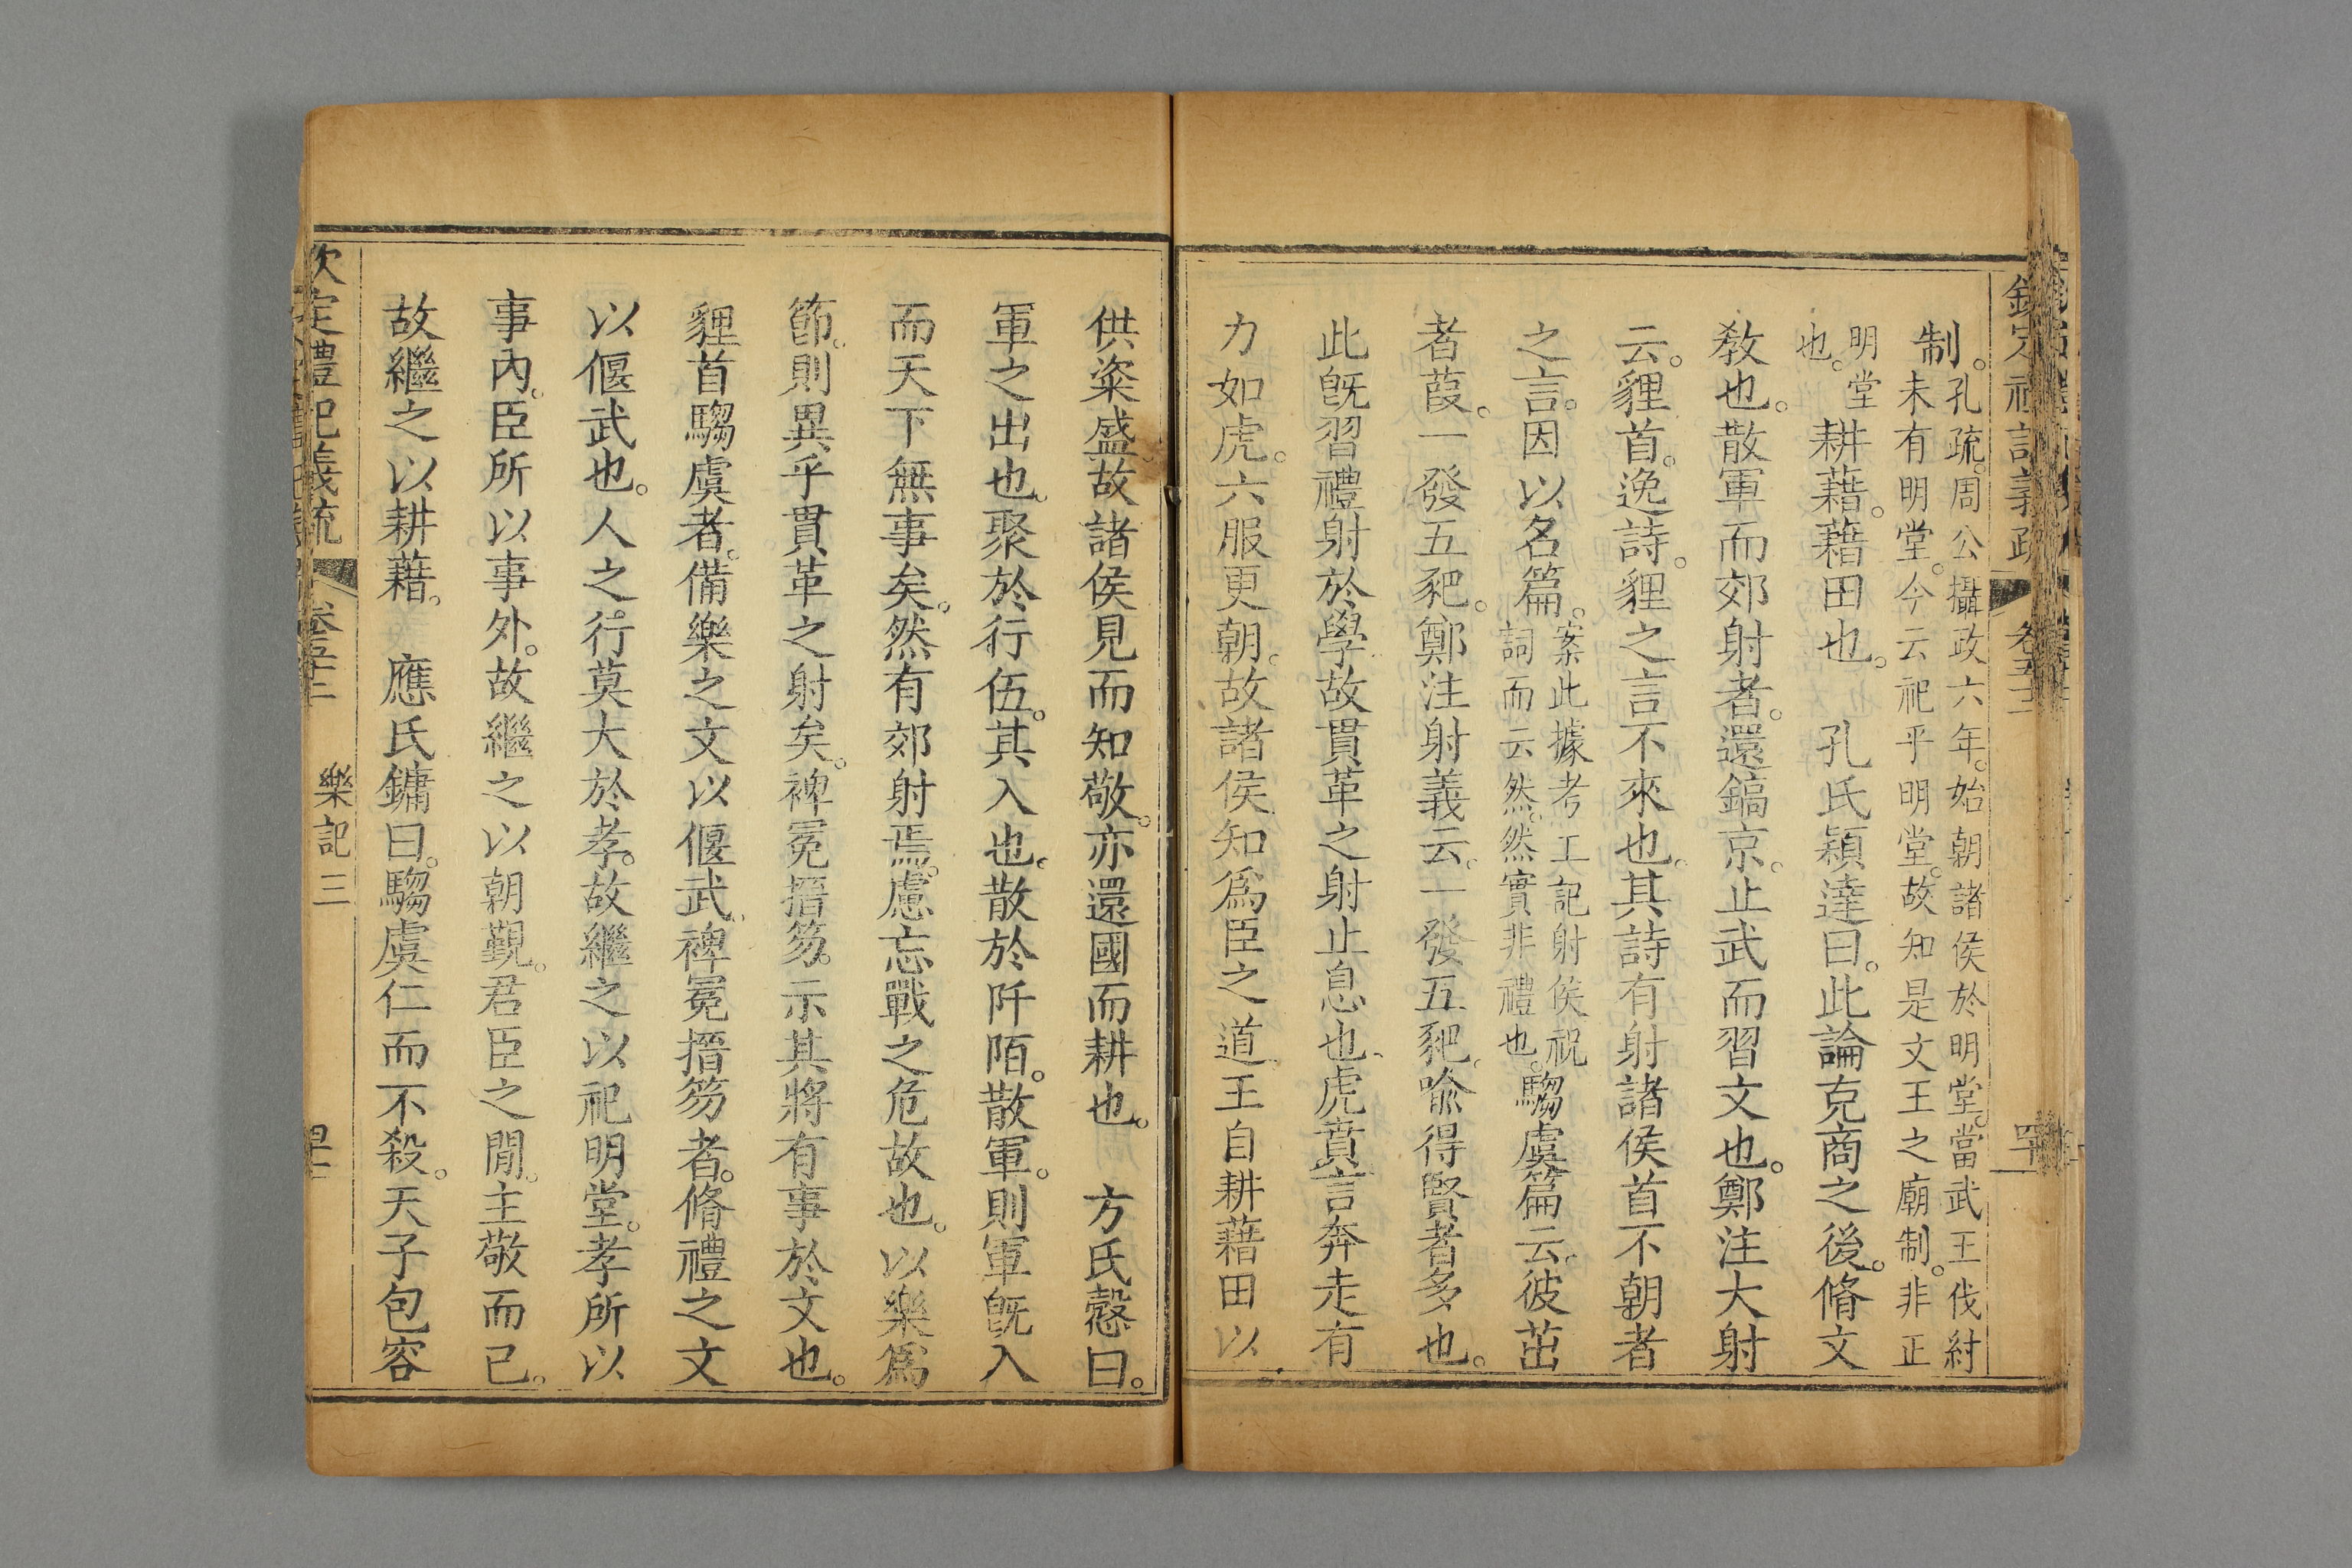 欽定禮記義疏 卷五十二
制。孔疏。周公攝政六年。始朝諸侯於明堂。當武王伐紂
未有明堂。今云祀乎明堂。故知是文王之廟制。非正
明堂也。耕藉。藉田也。 孔氏穎達曰。此論克商之後。脩文
教也。散軍而郊射者。還鎬京。止武而習文也。鄭注大射
云。貍首。逸詩。貍之言不來也。其詩有射諸侯首不朝者
之言。因以名篇。案此據考工記射侯祝詞而云然。然實非禮也。騶虞篇云。彼茁
者葭。一發五豝。鄭注射義云。一發五豝。喻得賢者多也。
此既習禮射於學故貫革之射止息也。虎賁言奔走有
力如虎。六服更朝。故諸侯知爲臣之道。王自耕藉田以
供粢盛故諸侯見而知敬。亦還國而耕也。 方氏慤曰。
軍之出也。聚於行伍。其入也。散於阡陌。散軍。則軍既入
而天下無事矣。然有郊射焉。慮忘戰之危故也。以樂爲
節。則異乎貫革之射矣。裨冕搢笏。示其將有事於文也。
貍首騶虞者。備樂之文以偃武。裨冕搢笏者。脩禮之文
以偃武也。人之行莫大於孝。故繼之以祀明堂。孝所以
事內。臣所以事外。故繼之以朝覲。君臣之閒。主敬而已。
故繼之以耕藉。 應氏鏞曰。騶虞仁而不殺。天子包容
欽定禮記義疏 卷五十二 樂記三